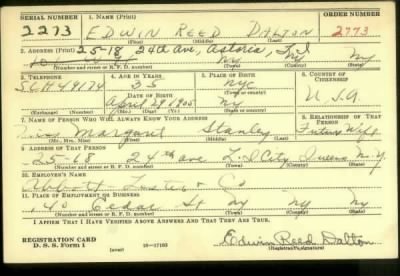 SERIAL NUMBER 1. NAME (Print) ORDER NUMBER
2273 EDWIN REED DALTON 2773
(First) (Middle) (Last)
2. ADDRESS (Print) 25-18 24th ave, Astoria, L.I
NY NY
(Number and street or R. F. D. number) (Town) (County) (State)
3. TELEPHONE 4. AGE IN YEARS 5. PLACE OF BIRTH 6. COUNTRY OF CITIZENSHIP
35 NYC
DATE OF BIRTH (Town or county)
April 29 1905 NY U.S.A
(Exchange) (No.) (Mo.) (Day) (Yr.) (State or country)
7. NAME OF PERSON WHO WILL ALWAYS KNOW YOUR ADDRESS 8. RELATIONSHIP OF THAT PERSON
Miss Margaret Stanley Future Wife
(Mr., Mrs., Miss) (First) (Middle) (Last)
9. ADDRESS OF THAT PERSON
25-68 24th ave L.I. City Queens N.Y.
(Number and street or R. F. D. number) (Town) (County) (State)
10. EMPLOYER'S NAME
Co
11. PLACE OF EMPLOYMENT OR BUSINESS
40 Cedar St NY NY NY
(Number and street or R. F. D. number) (Town) (County) (State)
I AFFIRM THAT I HAVE VERIFIED ABOVE ANSWERS AND THAT THEY ARE TRUE.
REGISTRATION CARD
D. S. S. Form 1 (over) 16—17105
Edwin Reed Dalton
(Registrant's signature)